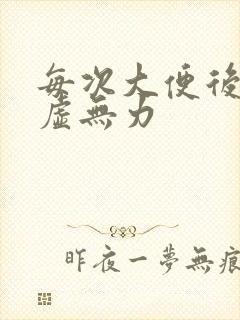 每次大便後
虛無力
昨夜一夢無痕